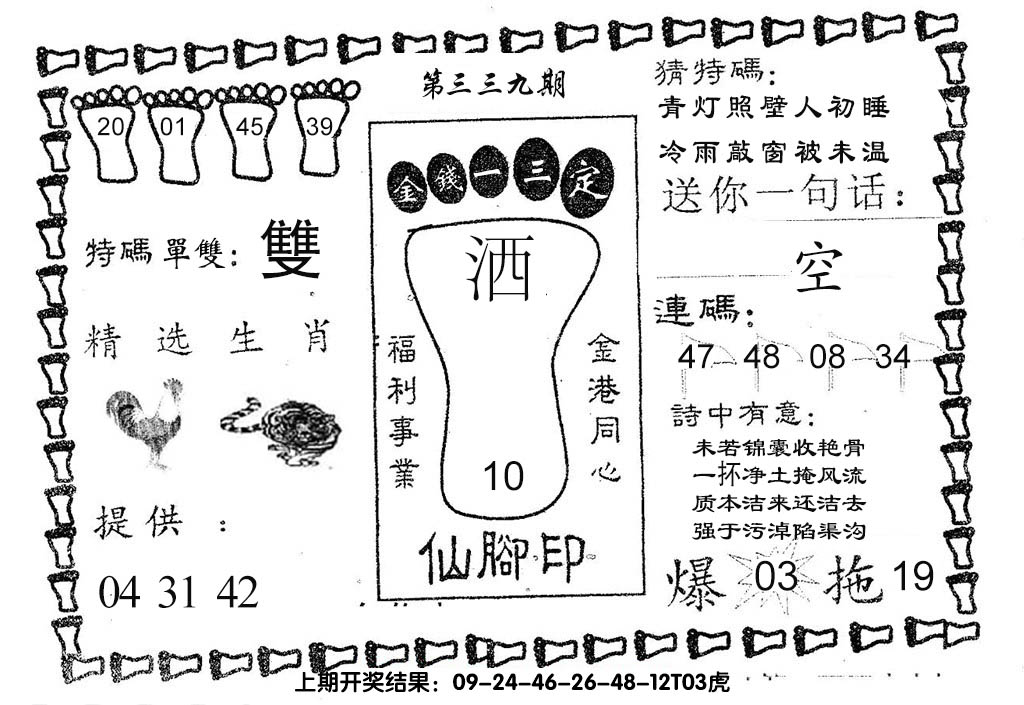 第三三九期
20 01 45 39
特碼單雙：雙
精选生肖
提供：
04 31 42
金錢一三定
洒
福利事業
金港同心
10
仙腳印
猜特碼：
青灯照壁人初睡
冷雨敲窗被未温
送你一句话：
空
連碼：
47 48 08 34
詩中有意：
未若锦囊收艳骨
一抔净土掩风流
质本洁来还洁去
强于污淖陷渠沟
爆 03 拖 19
上期开奖结果：09-24-46-26-48-12T03虎